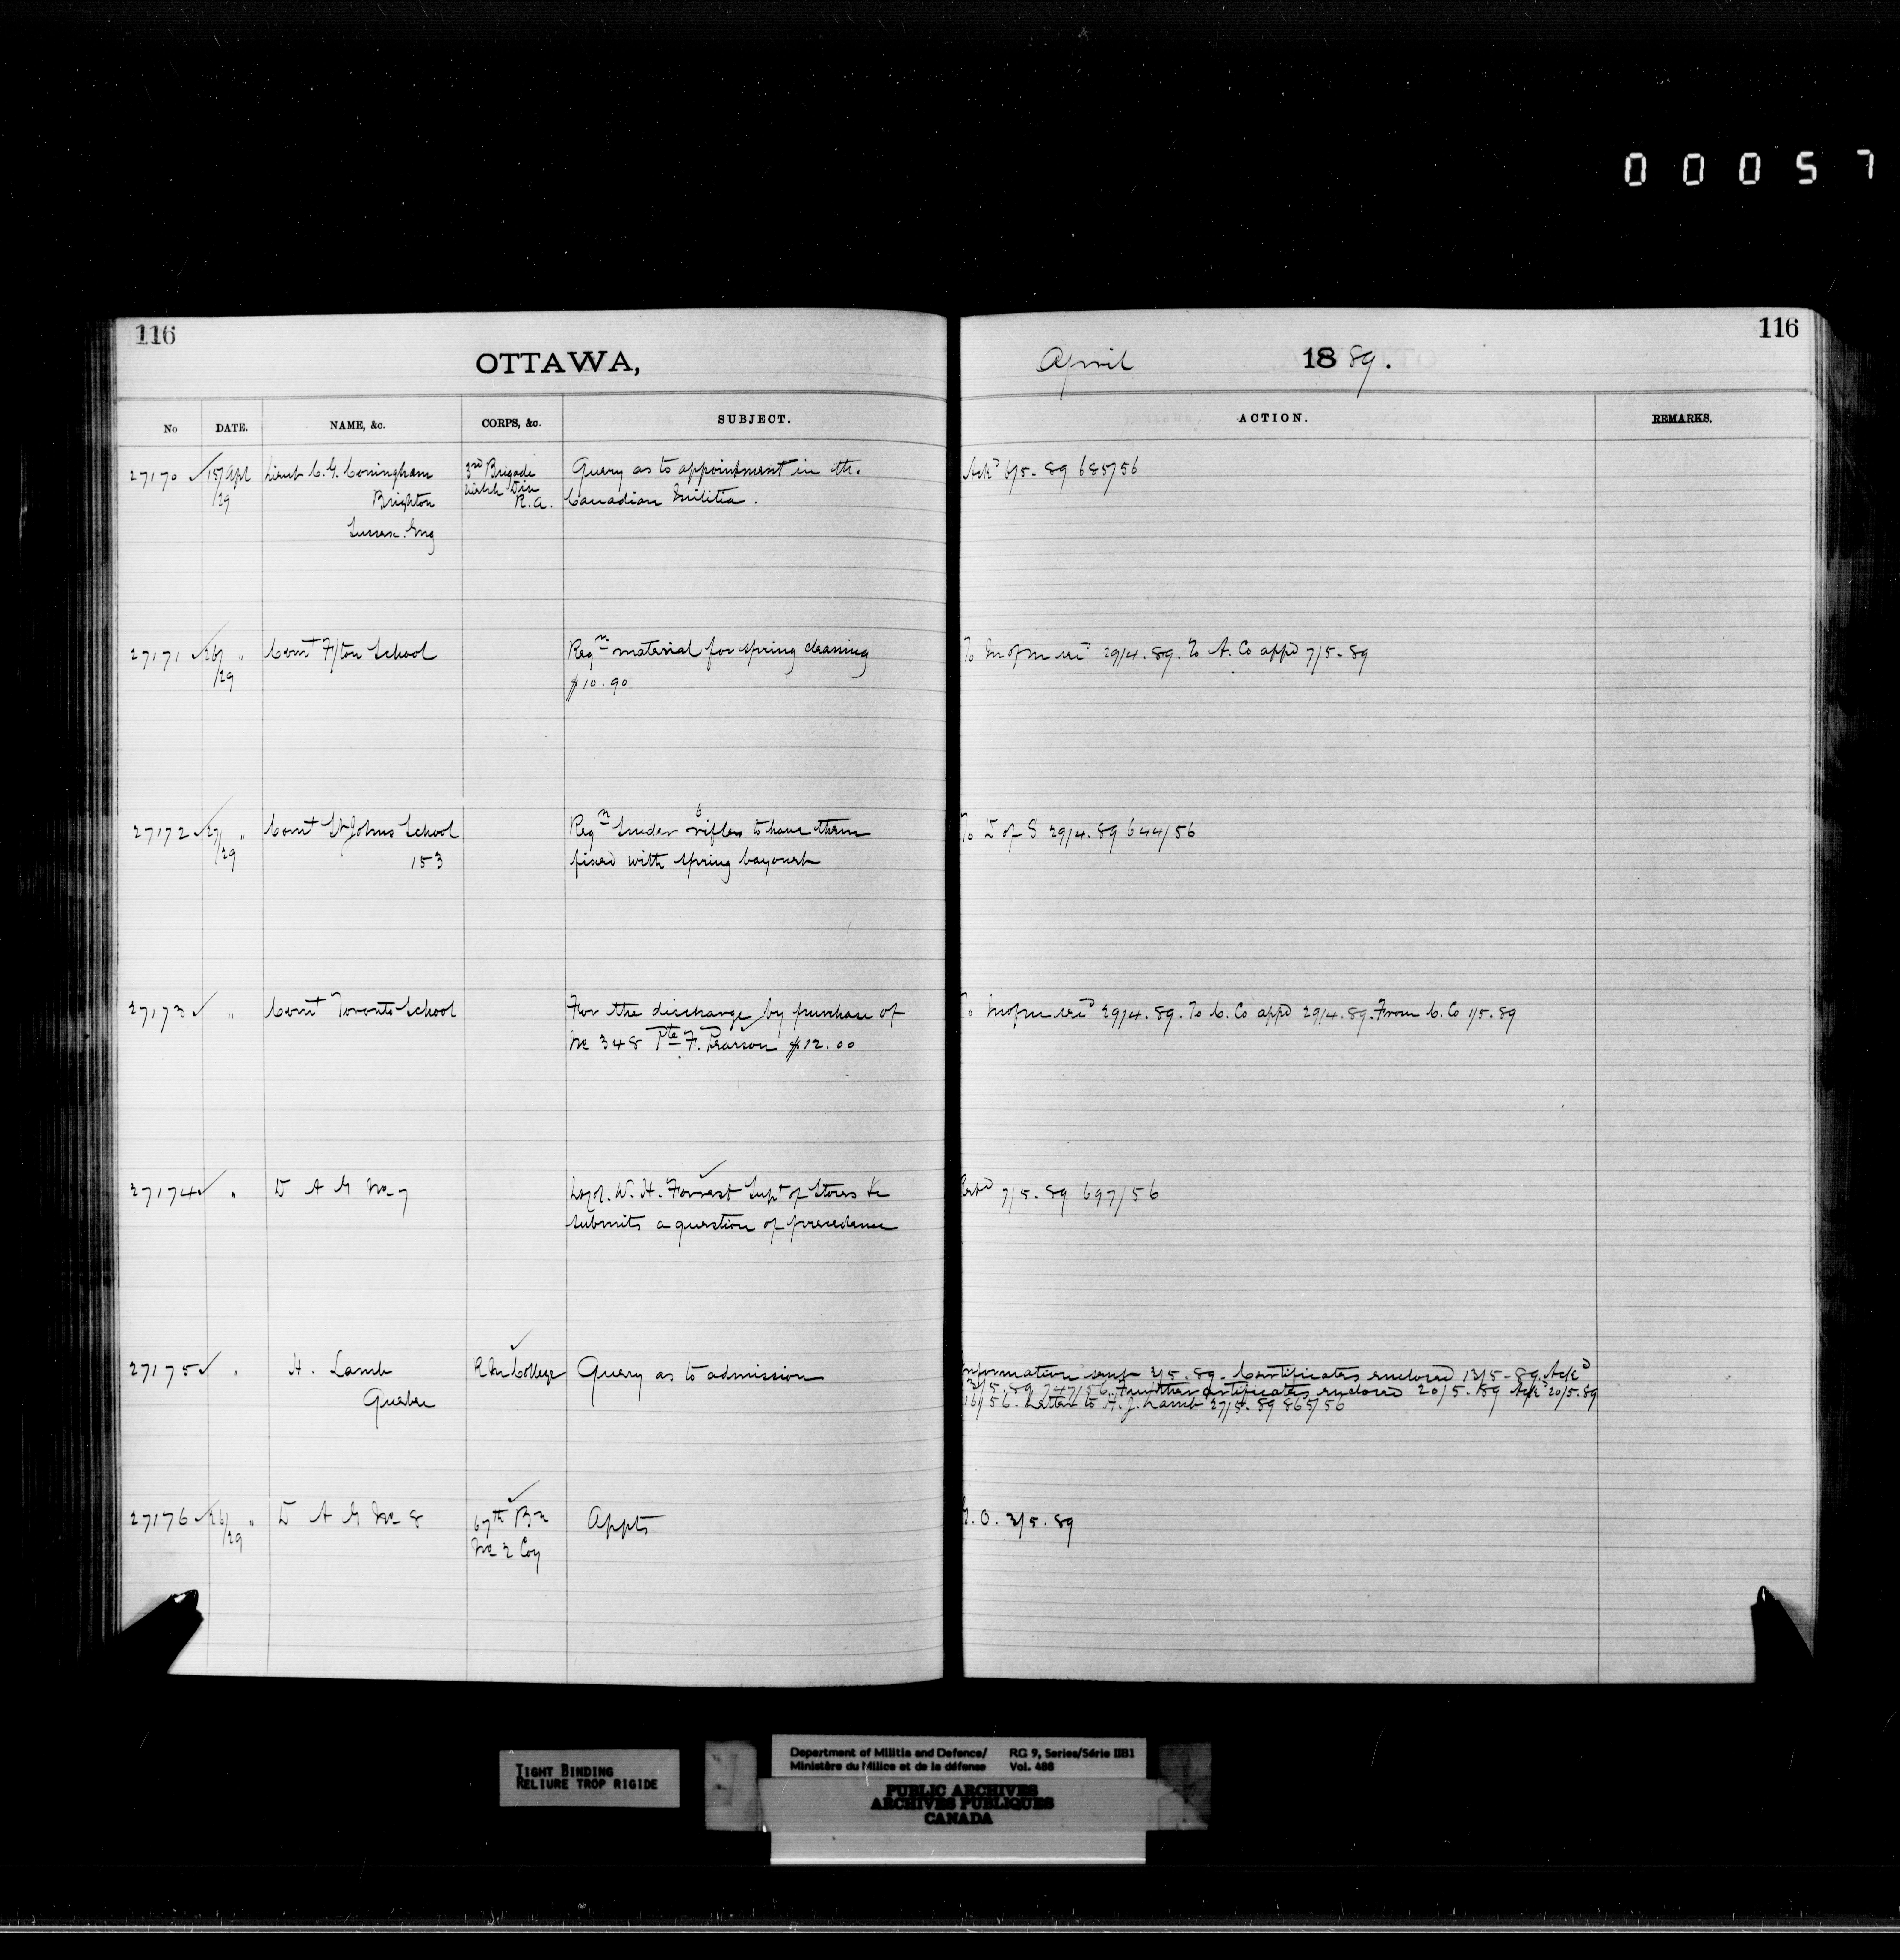 0 0 0 5 7
116
OTTAWA,
April 1889.
116
No DATE. NAME, &c. CORPS, &c. SUBJECT.
ACTION. REMARKS.
27170 15/ Apl Lieut C. G. Coningham 3rd Brigade Query as to appointment in the
/29 Brighton Welsh Div Canadian Militia.
Sussex. Eng R.A.
Ackd 6/5-89 685/56
27171 26/ " Comt F/ton School Reqn material for spring cleaning
/29 $10.90
To M of M 29/4.89. To A. Co appd 7/5-89
27172 27/ " Comt St Johns School Reqn Snider 6 rifles to have them
/29 153 fixed with spring bayonet
To D of S 29/4.89 644/56
27173 " Comt Toronto School For the discharge by purchase of
No 348 Pte F. Pearson $12.00
To M of M 29/4.89. To C. Co appd 29/4.89. From C. Co 1/5.89
27174 " D A G No 7 Lt Col. W. H. Forrest Supt of Stores &c
submits a question of precedence
7/5-89 697/56
27175 " H. Lamb R M College Query as to admission
Quebec
Information sent 3/5.89. Certificates enclosed 13/5-89. Ackd
13/5.89 747/56. Further certificates enclosed 20/5.89 Ackd 20/5.89
/56. Letter to H. J. Lamb 27/5.89 865/56
27176 26/ " D A G No 8 67th Bn Appts
/29 No 2 Coy
G.O. 3/5.89
TIGHT BINDING
RELIURE TROP RIGIDE
Department of Militia and Defence/ RG 9, Series/Série IIB1
Ministère du Milice et de la défense Vol. 488
PUBLIC ARCHIVES
ARCHIVES PUBLIQUES
CANADA